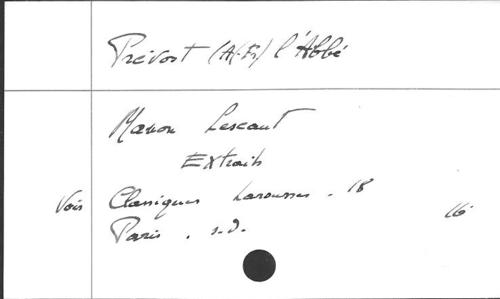 Prévost (A.-Fr) l'Abbé
Manon Lescaut
Extraits
Vois Classiques Larousse . 18
Paris . s.d. 16